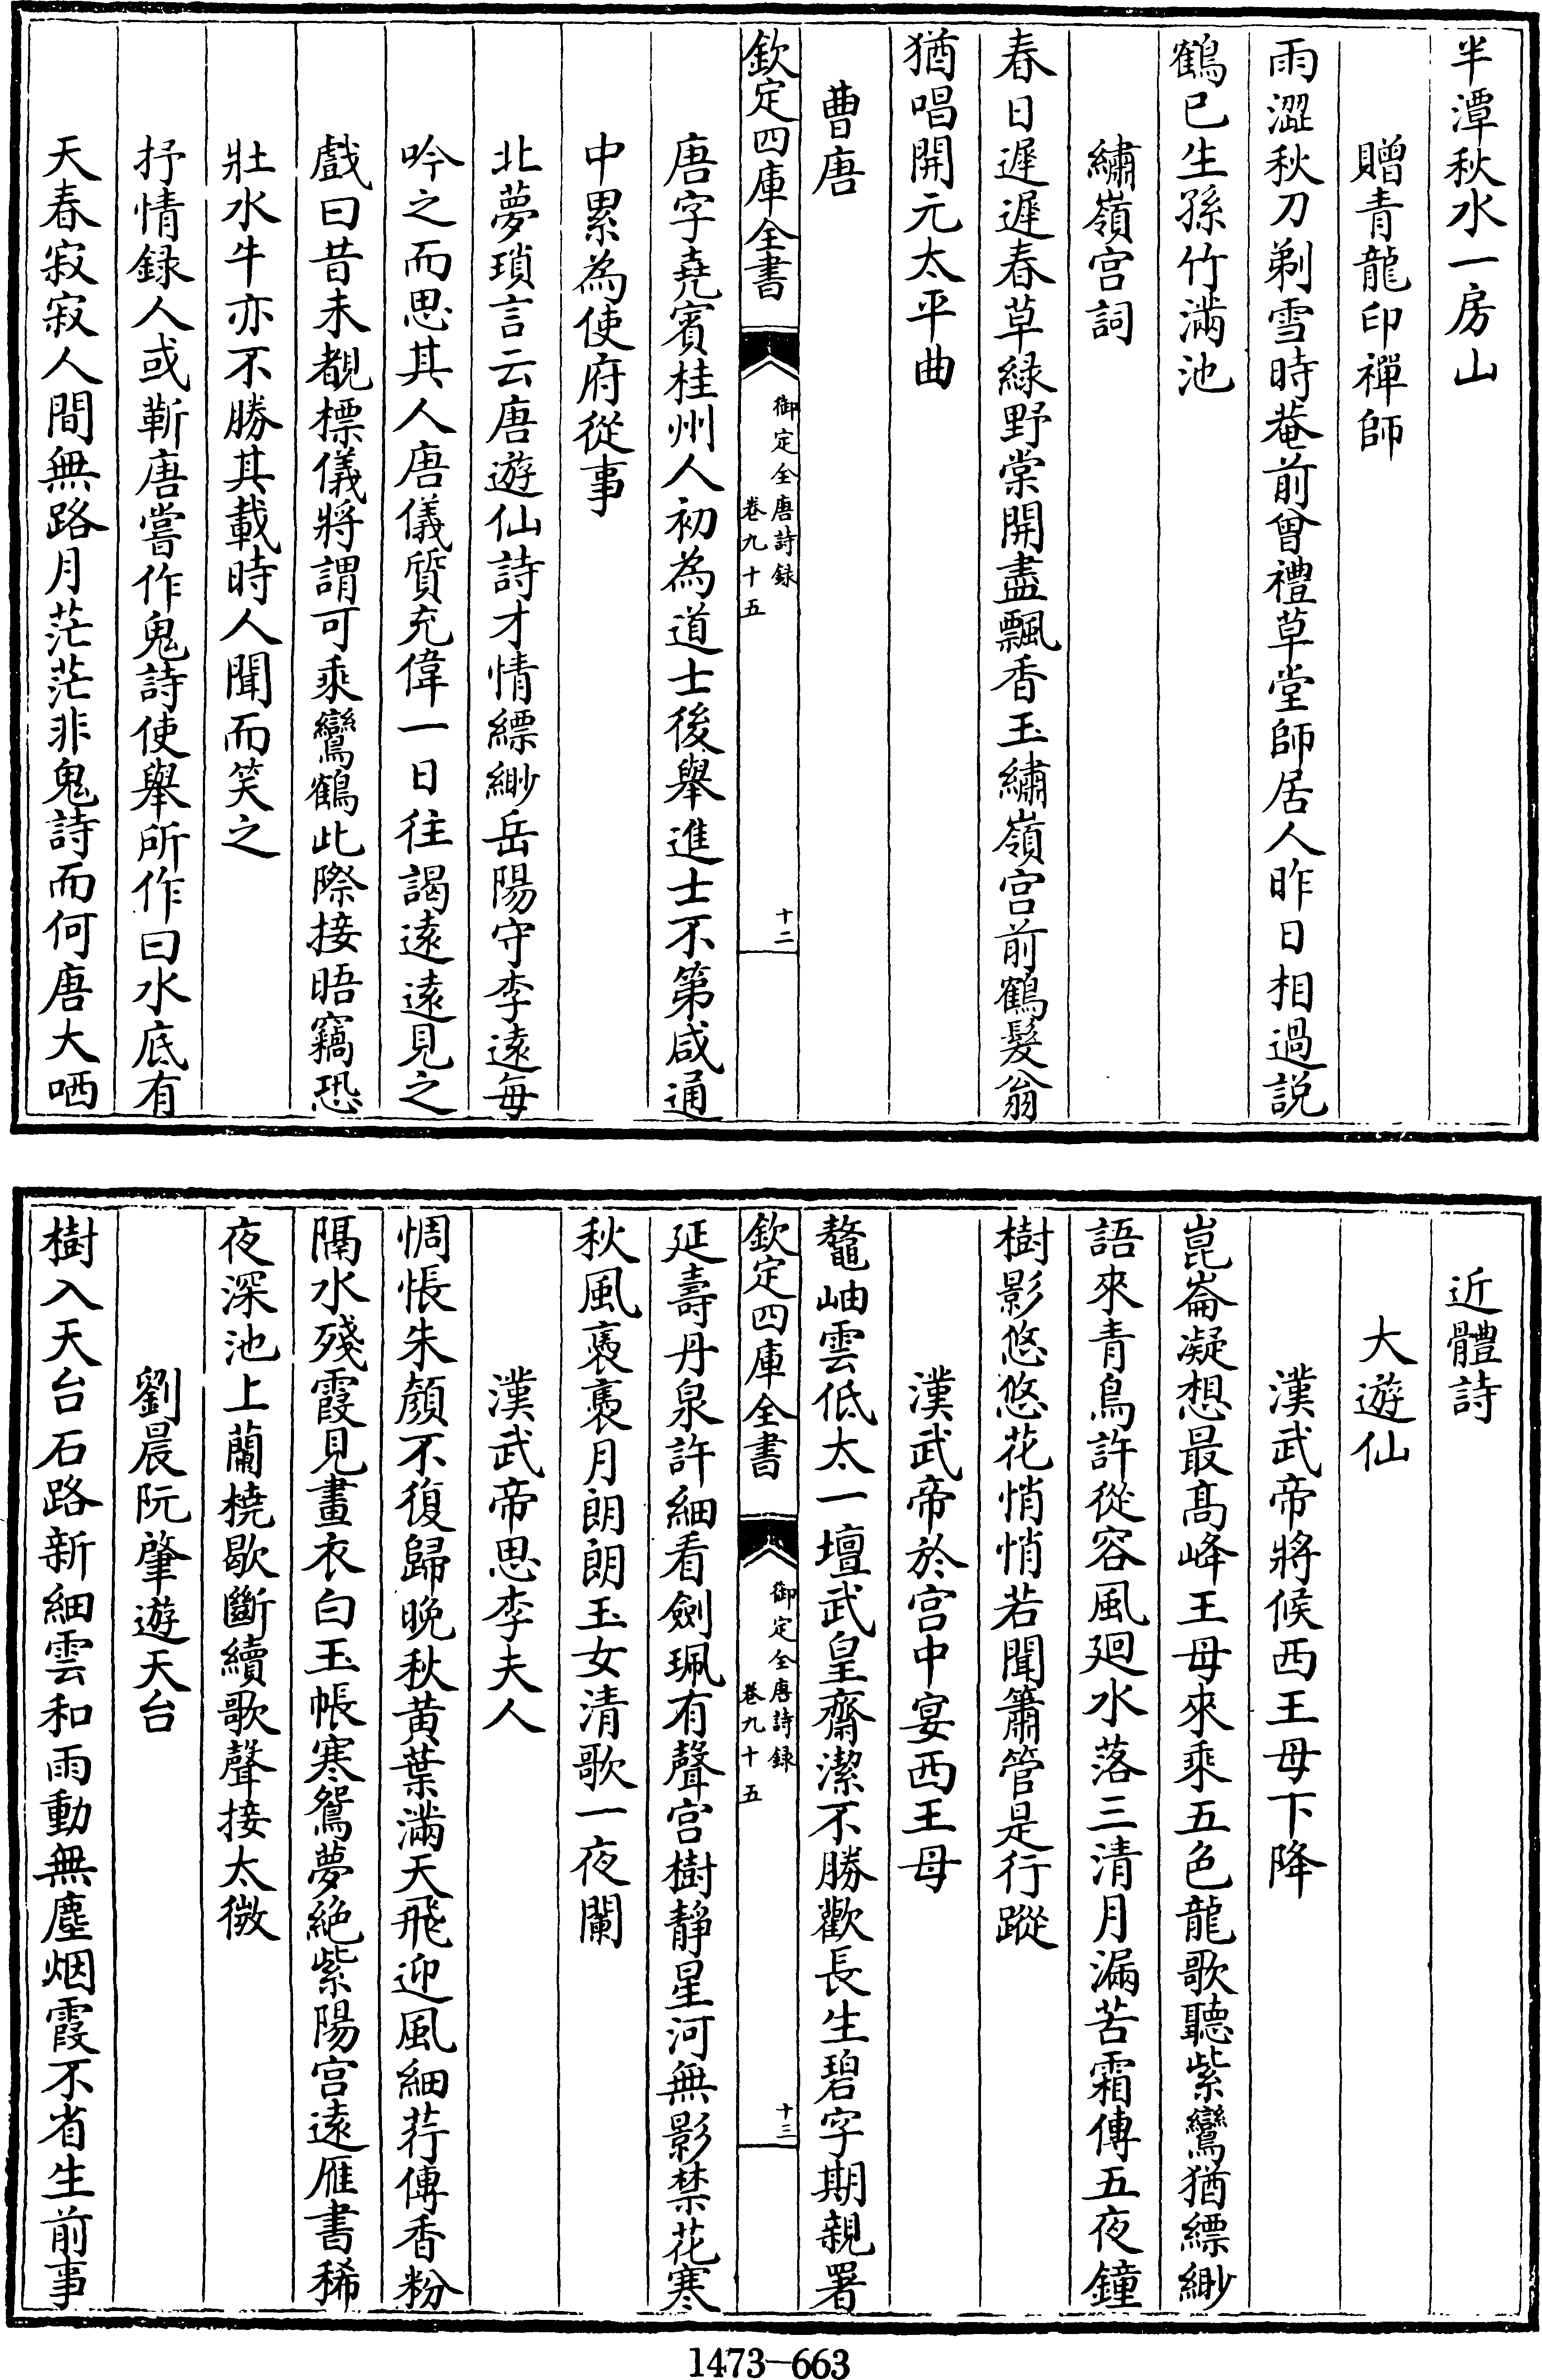 半潭秋水一房山
贈青龍印禪師
雨澀秋刀剃雪時菴前曾禮草堂師居人昨日相過説
鶴已生孫竹滿池
繡嶺宫詞
春日遲遲春草緑野棠開盡飄香玉繡嶺宫前鶴髮翁
猶唱開元太平曲
曹唐
欽定四庫全書
御定全唐詩録
卷九十五
十二
唐字堯賓桂州人初為道士後舉進士不第咸通
中累為使府從事
北夢瑣言云唐遊仙詩才情縹緲岳陽守李遠每
吟之而思其人唐儀質充偉一日往謁遠遠見之
戲曰昔未覩標儀將謂可乘鸞鶴此際接晤竊恐
壯水牛亦不勝其載時人聞而笑之
抒情録人或靳唐嘗作鬼詩使舉所作曰水底有
天春寂寂人間無路月茫茫非鬼詩而何唐大哂
近體詩
大遊仙
漢武帝將候西王母下降
崑崙凝想最髙峰王母來乘五色龍歌聽紫鸞猶縹緲
語來青鳥許從容風廻水落三清月漏苦霜傳五夜鐘
樹影悠悠花悄悄若聞簫管是行蹤
漢武帝於宫中宴西王母
鼇岫雲低太一壇武皇齋潔不勝歡長生碧字期親署
欽定四庫全書
御定全唐詩録
卷九十五
十三
延壽丹泉許細看劍珮有聲宫樹靜星河無影禁花寒
秋風裊裊月朗朗玉女清歌一夜闌
漢武帝思李夫人
惆悵朱顔不復歸晚秋黄葉滿天飛迎風細荇傳香粉
隔水殘霞見畫衣白玉帳寒鴛夢絶紫陽宫遠雁書稀
夜深池上蘭橈歇斷續歌聲接太微
劉晨阮肇遊天台
樹入天台石路新細雲和雨動無塵烟霞不省生前事
1473—663